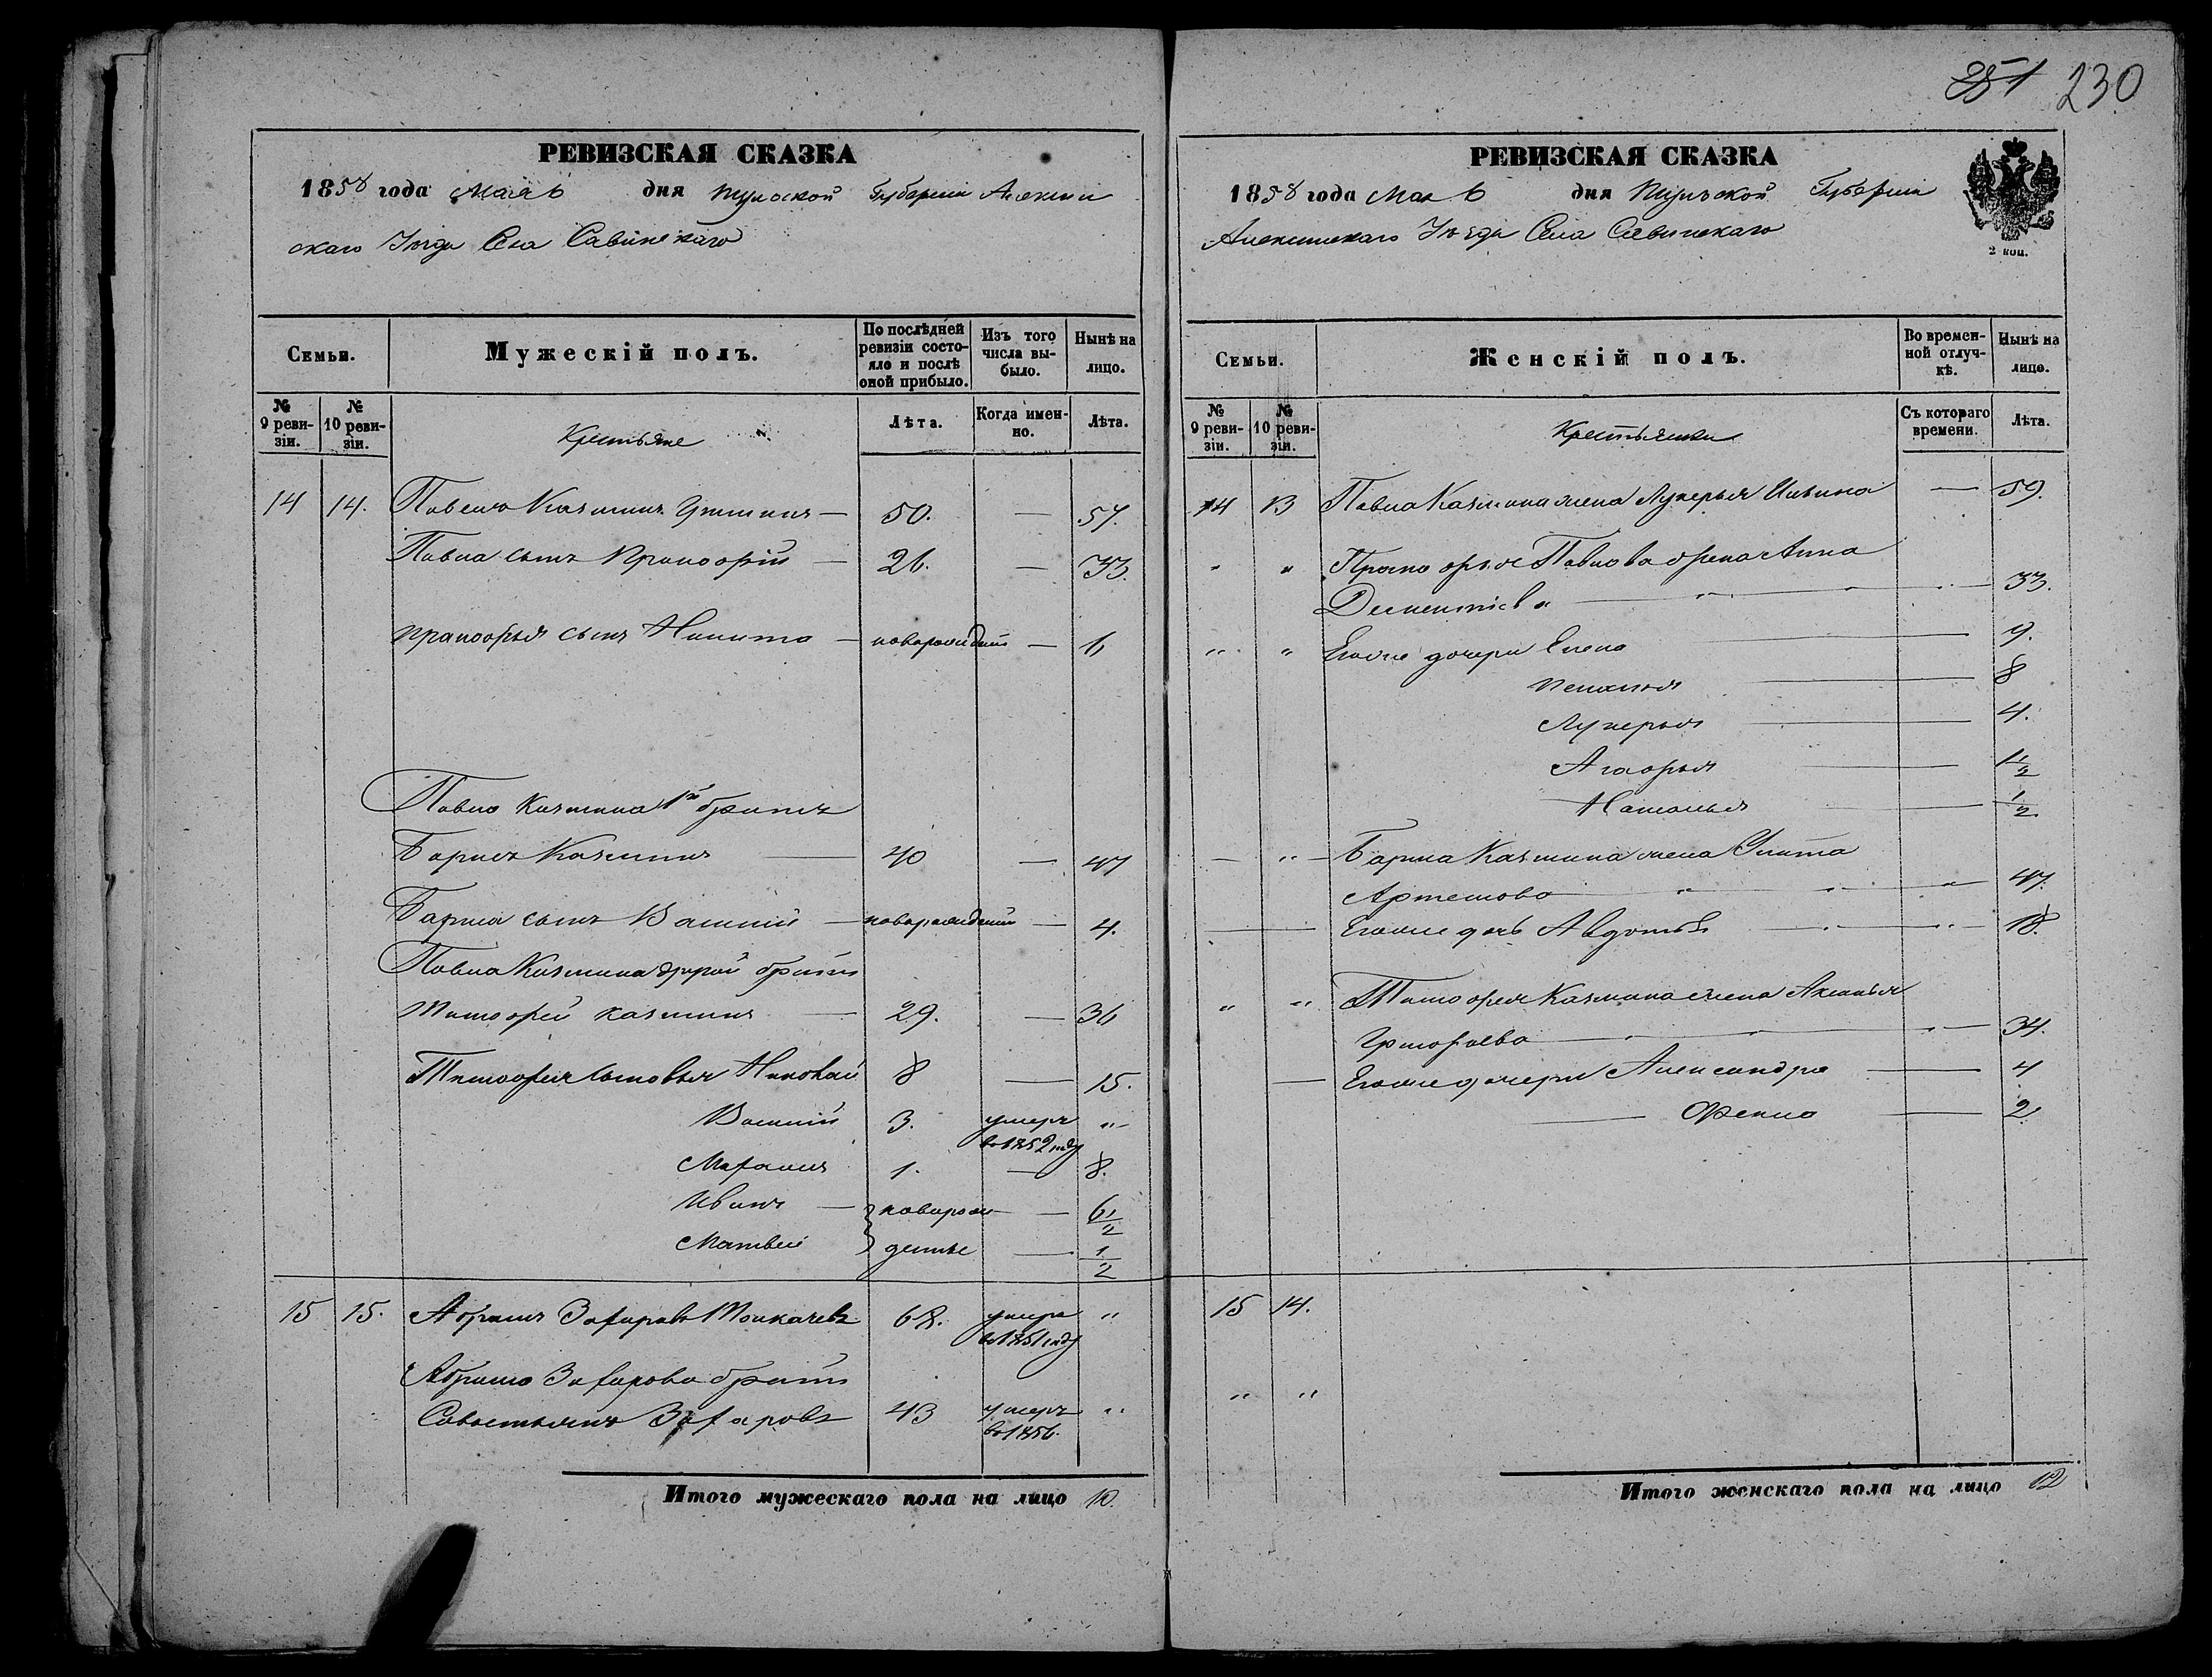 251 230
РЕВИЗСКАЯ СКАЗКА
1858 года Мая 6 дня Тульской Губернии Алексин
скаго Уезда Села Савинскаго
Семьи. Мужескій полъ. По послѣдней ревизіи состояло и послѣ оной прибыло. Изъ того числа выбыло. Нынѣ на лицо.
№ 9 ревизіи. № 10 ревизіи. Крестьяне Лѣта. Когда именно. Лѣта.
14 14. Павелъ Казминъ — 50. — 57.
Павла сынъ Прокофій — 26. — 33.
Прокофья сынъ Никита — новорожденный — 6
Павла Казмина 1й братъ
Борисъ Казминъ — 40 — 47
Бориса сынъ Василий — новорожденный — 4.
Павла Казмина другой братъ
Тимофей Казминъ — 29. — 36
Тимофея сыновья Николай 8 — 15.
Василий 3. умеръ в 1852 году "
1. — 8.
Иванъ — новорож — 6 1/2
Матвей денные — 1/2
15 15. Абрамъ Захаровъ Толкачевъ 68. умеръ в 1851 году "
Абрама Захарова братъ
Савостьянъ Захаровъ 43 умеръ в 1856. "
Итого мужескаго пола на лицо 10.
РЕВИЗСКАЯ СКАЗКА
1858 года Мая 6 дня Тульской Губернии
Алексинскаго Уезда Села Савинскаго
2 коп.
Семьи. Женскій полъ. Во временной отлучкѣ. Нынѣ на лицо.
№ 9 ревизіи. № 10 ревизіи. Крестьянки Съ котораго времени. Лѣта.
14 13 Павла Казмина жена Лукерья Ильина — 59.
" " Прокофья Павлова жена Анна
Дементиева — " — 33.
" " Егоже дочери Елена — 9.
Пелагея — 8
Лукерья — 4.
Агафья — 1 1/2
Наталья — 1/2
— " — Бориса Казмина жена Улита
Артемова — " — 47.
— Егоже дочь Авдотья — 18.
" " Тимофея Казмина жена Аксинья
Григорьева — 34.
— Егоже дочери Александра — 4
— Фекла — 2
15 14.
" "
Итого женскаго пола на лицо 12